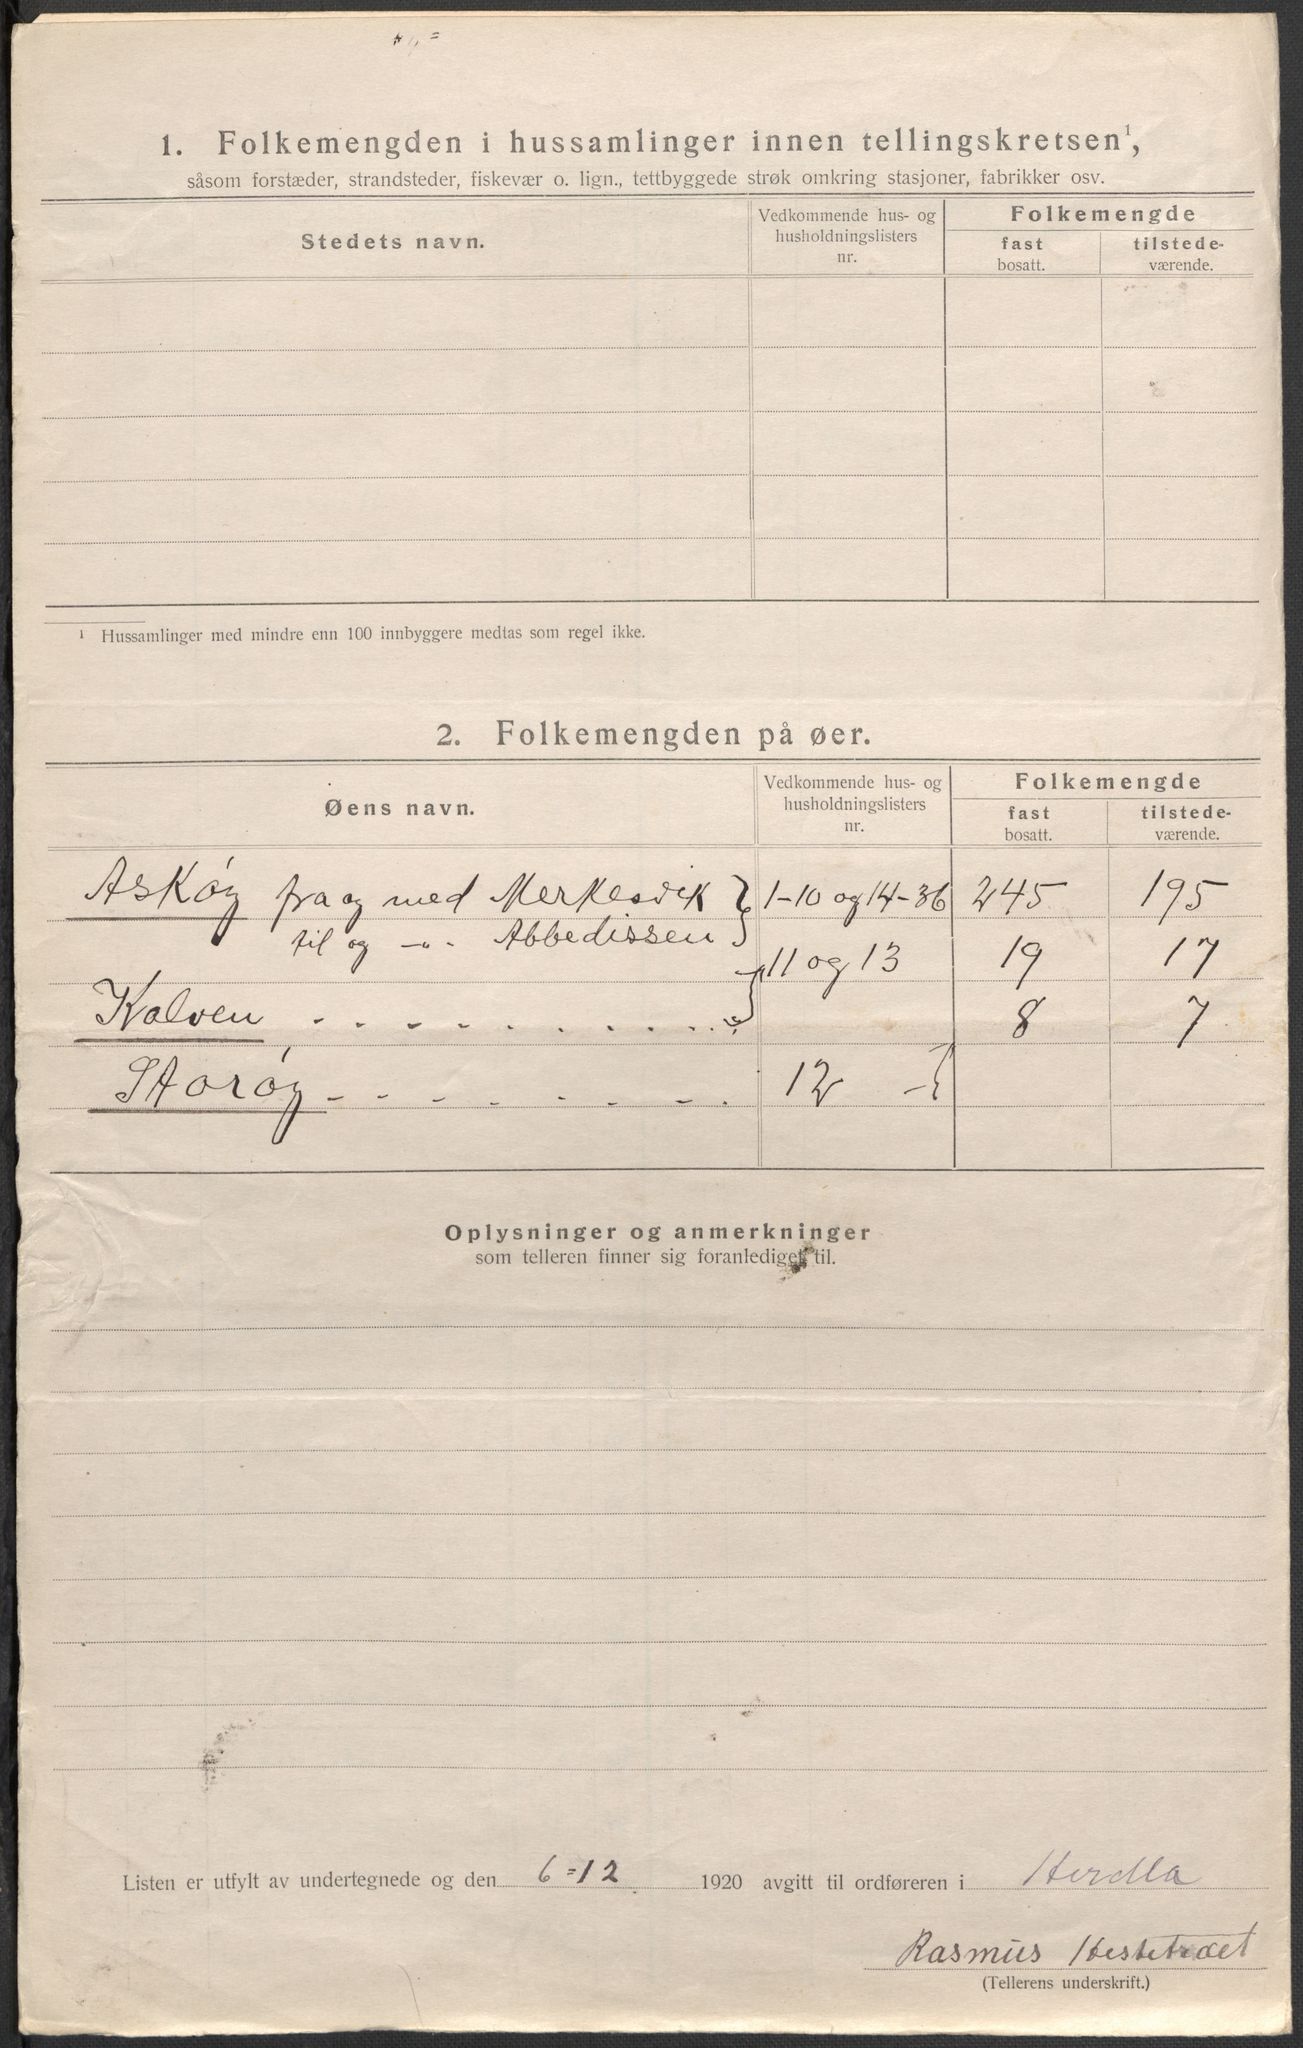 1. Folkemengden i hussamlinger innen tellingskretsen¹,
såsom forstæder, strandsteder, fiskevær o. lign., tettbyggede strøk omkring stasjoner, fabrikker osv.
Stedets navn.
Vedkommende hus- og
husholdningslisters
nr.
Folkemengde
fast
bosatt.
tilstede-
værende.
¹ Hussamlinger med mindre enn 100 innbyggere medtas som regel ikke.
2. Folkemengden på øer.
Øens navn.
Vedkommende hus- og
husholdningslisters
nr.
Folkemengde
fast
bosatt.
tilstede-
værende.
Askøy fra og med Merkesvik 1-10 og 14-36 245 195
til og -"- Abbedissen
11 og 13 19 17
Kalven 8 7
Storøy 12
Oplysninger og anmerkninger
som telleren finner sig foranlediget til.
Listen er utfylt av undertegnede og den 6=12 1920 avgitt til ordføreren i Herdla
Rasmus Hestetræet
(Tellerens underskrift.)